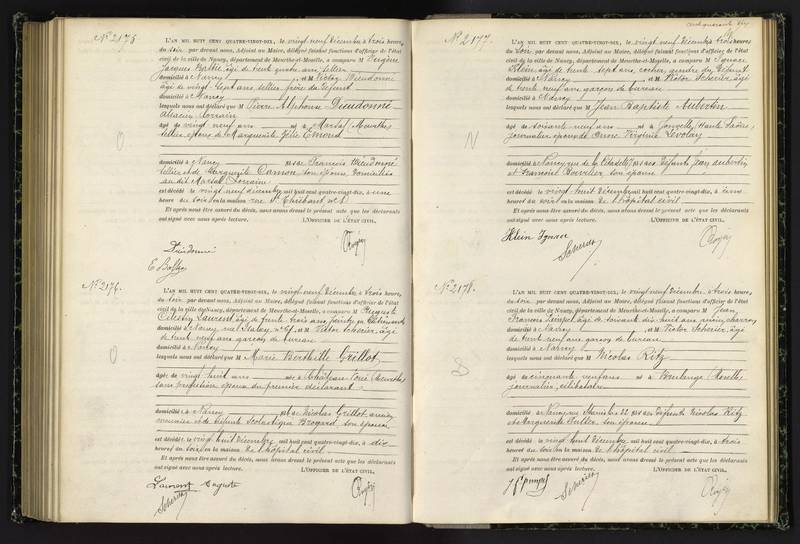 N° 2175
L'AN MIL HUIT CENT QUATRE-VINGT-DIX, le vingt neuf Décembre à trois heures,
du soir par devant nous, Adjoint au Maire, délégué faisant fonctions d'officier de l'état
civil de la ville de Nancy, département de Meurthe-et-Moselle, a comparu M Eugène
Jacques Bothe âgé de trente quatre ans, sellier
domicilié à Nancy et M Victor Dieudonné
âgé de vingt-sept ans sellier, frère du défunt
domicilié à Nancy
lesquels nous ont déclaré que M Pierre Alphonse Dieudonné
alsacien-lorrain
âgé de vingt neuf ans né à Marsal (Meurthe)
sellier, époux de Marguerite Julie Emond
domicilié à Nancy fils de François Dieudonné
sellier et de Marguerite Damon, son épouse, domiciliés
audit Marsal Lorraine
est décédé le vingt neuf décembre mil huit cent quatre-vingt-dix, à une
heure du soir en la maison rue St Thiébaut, n°
Et après nous être assuré du décès, nous avons dressé le présent acte que les déclarants
ont signé avec nous après lecture. L'OFFICIER DE L'ÉTAT CIVIL,
Dieudonné
E Bothe
N° 2176.
L'AN MIL HUIT CENT QUATRE-VINGT-DIX, le vingt neuf Décembre, à trois heures,
du soir par devant nous, Adjoint au Maire, délégué faisant fonctions d'officier de l'état
civil de la ville de Nancy, département de Meurthe-et-Moselle, a comparu M Auguste
Célestin Laurent âgé de trente trois ans, peintre en bâtiments
domicilié à Nancy, rue n° et M Victor Scherier, âgé
de trente neuf ans, garçon de bureau
domicilié à Nancy
lesquels nous ont déclaré que M Marie Berthille Grillot
âgée de vingt huit ans née à Château-Voué (Meurthe)
sans profession, épouse du premier déclarant
domiciliée à Nancy fille de Nicolas Grillot, ancien
et de défunte Scolastique Brogard, son épouse
est décédée le vingt huit Décembre mil huit cent quatre-vingt-dix, à dix
heures du soir en la maison de l'hôpital civil
Et après nous être assuré du décès, nous avons dressé le présent acte que les déclarants
ont signé avec nous après lecture. L'OFFICIER DE L'ÉTAT CIVIL,
Laurent Auguste
Scherier
N° 2177.
L'AN MIL HUIT CENT QUATRE-VINGT-DIX, le vingt neuf Décembre à trois heures
du soir par devant nous, Adjoint au Maire, délégué faisant fonctions d'officier de l'état
civil de la ville de Nancy, département de Meurthe-et-Moselle, a comparu M Ignace
Klein, âgé de trente sept ans, cocher, gendre du défunt
domicilié à Nancy et M Victor Scherier, âgé
de trente neuf ans garçon de bureau
domicilié à Nancy
lesquels nous ont déclaré que M Jean Baptiste Aubertin
âgé de soixante-neuf ans né à Jonvelle, Haute Saône,
journalier, époux de Anne Virginie Levolay
domicilié à Nancy, rue de la Citadelle, fils des défunts Jean Aubertin
et Françoise Bouvelier son épouse
est décédé le vingt huit Décembre mil huit cent quatre-vingt-dix, à
heures du soir en la maison de l'hôpital civil
Et après nous être assuré du décès, nous avons dressé le présent acte que les déclarants
ont signé avec nous après lecture. L'OFFICIER DE L'ÉTAT CIVIL,
Klein Ignace
Scherier
N° 2178.
L'AN MIL HUIT CENT QUATRE-VINGT-DIX, le vingt neuf Décembre à trois heures,
du soir par devant nous, Adjoint au Maire, délégué faisant fonctions d'officier de l'état
civil de la ville de Nancy, département de Meurthe-et-Moselle, a comparu M Jean
François âgé de soixante dix-huit ans,
domicilié à Nancy et M Victor Scherier, âgé
de trente neuf ans garçon de bureau
domicilié à Nancy
lesquels nous ont déclaré que M Nicolas Ritz
âgé de cinquante neuf ans né à Boulange (Moselle)
journalier, célibataire
domicilié à Nancy, rue 22 fils des défunts Nicolas Ritz
et Marguerite son épouse
est décédé le vingt huit Décembre mil huit cent quatre-vingt-dix, à trois
heures du soir en la maison de l'hôpital civil
Et après nous être assuré du décès, nous avons dressé le présent acte que les déclarants
ont signé avec nous après lecture. L'OFFICIER DE L'ÉTAT CIVIL,
Scherier